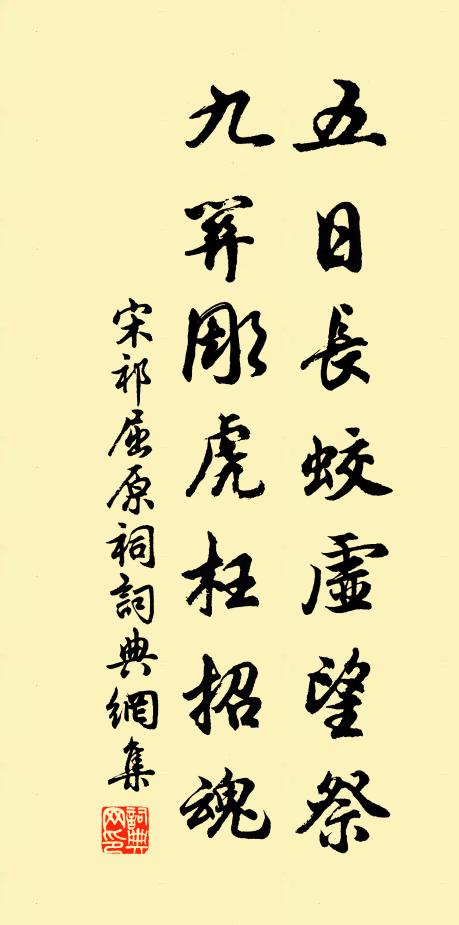 五日長蛟虛望祭
九筭彫虎枉招魂
宋祁屈原祠詞典網集
詞典網印